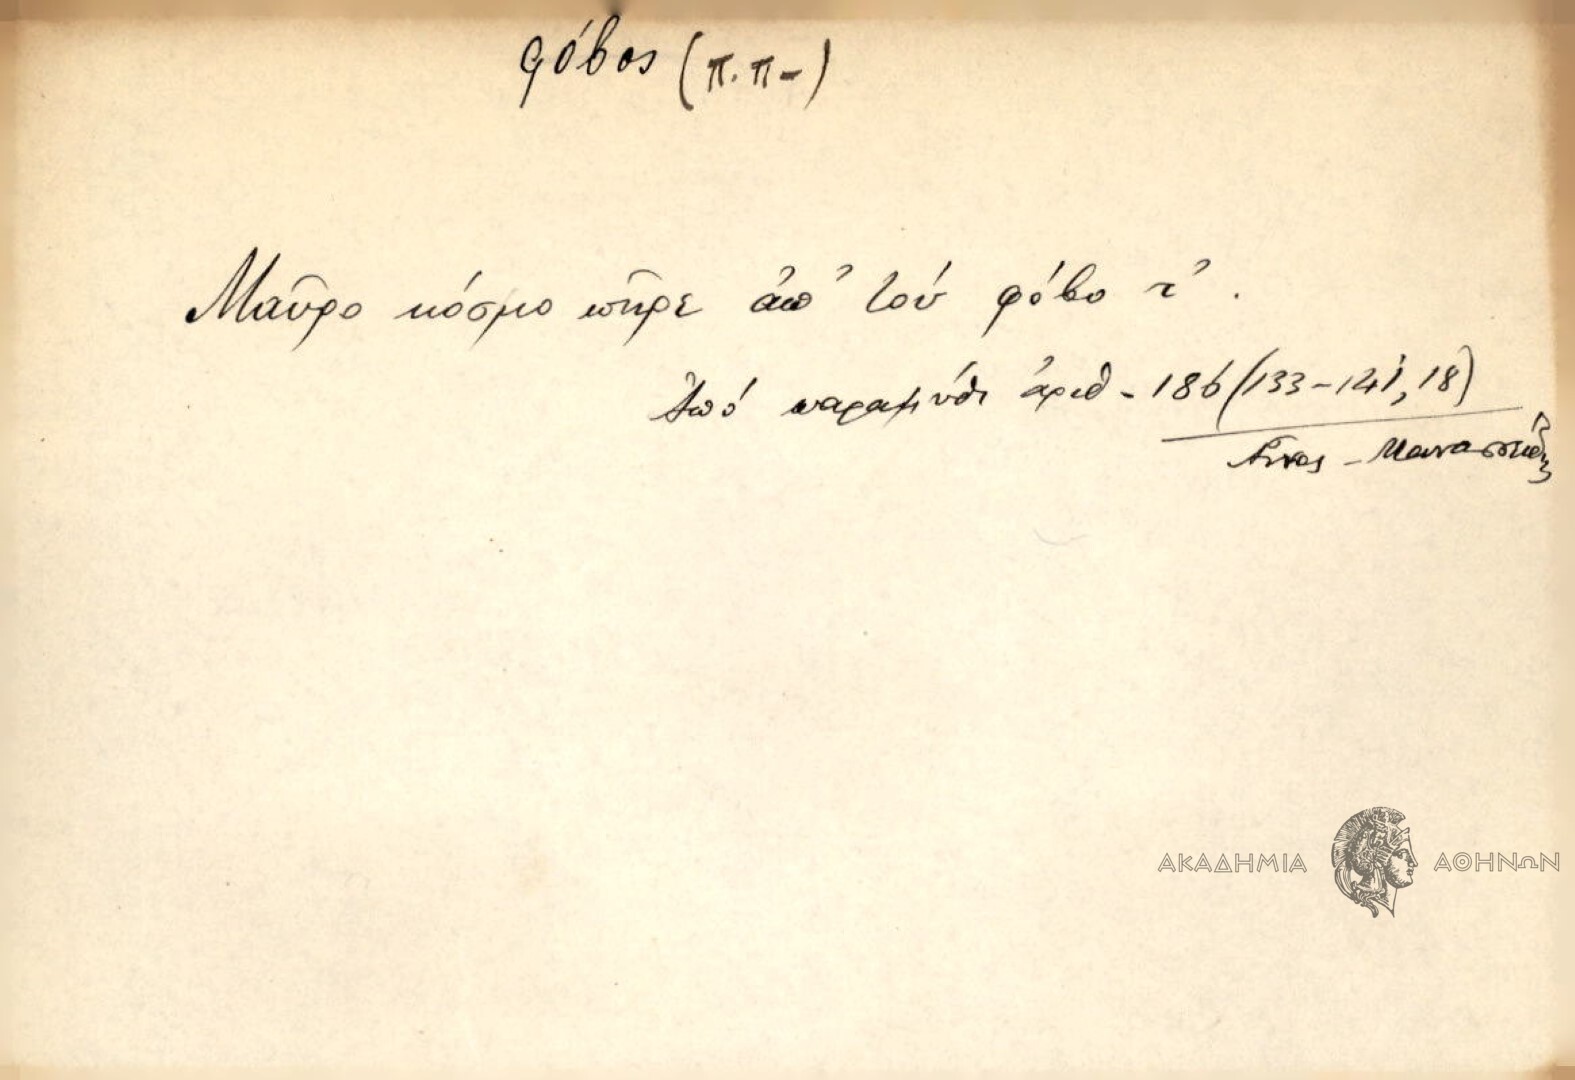 φόβος (π.π-)
Μαῦρο κόσμο πῆρε ἀπ' τού φόβο τ'.
Ἀπό παραμύθι ἀριθ- 186 (133-141, 18)
Αἶνος - Μαναστηρ
ΑΚΑΔΗΜΙΑ ΑΘΗΝΩΝ